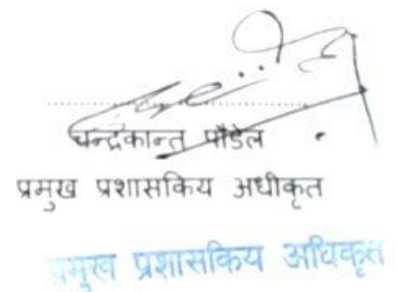 चन्द्रकान्त पौडेल
प्रमुख प्रशासकिय अधीकृत
प्रमुख प्रशासकिय अधिकृत